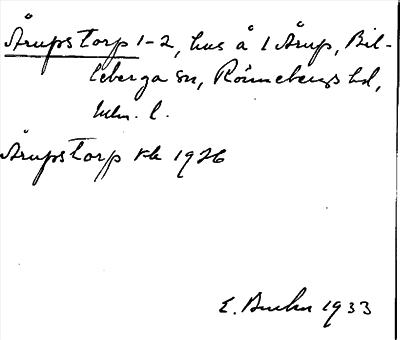 Årupstorp 1-2, hus å 1 Årup, Bil-
leberga sn, Rönnebergs hd,
Mlm. l.
Årupstorp rk 1926
E. 1933